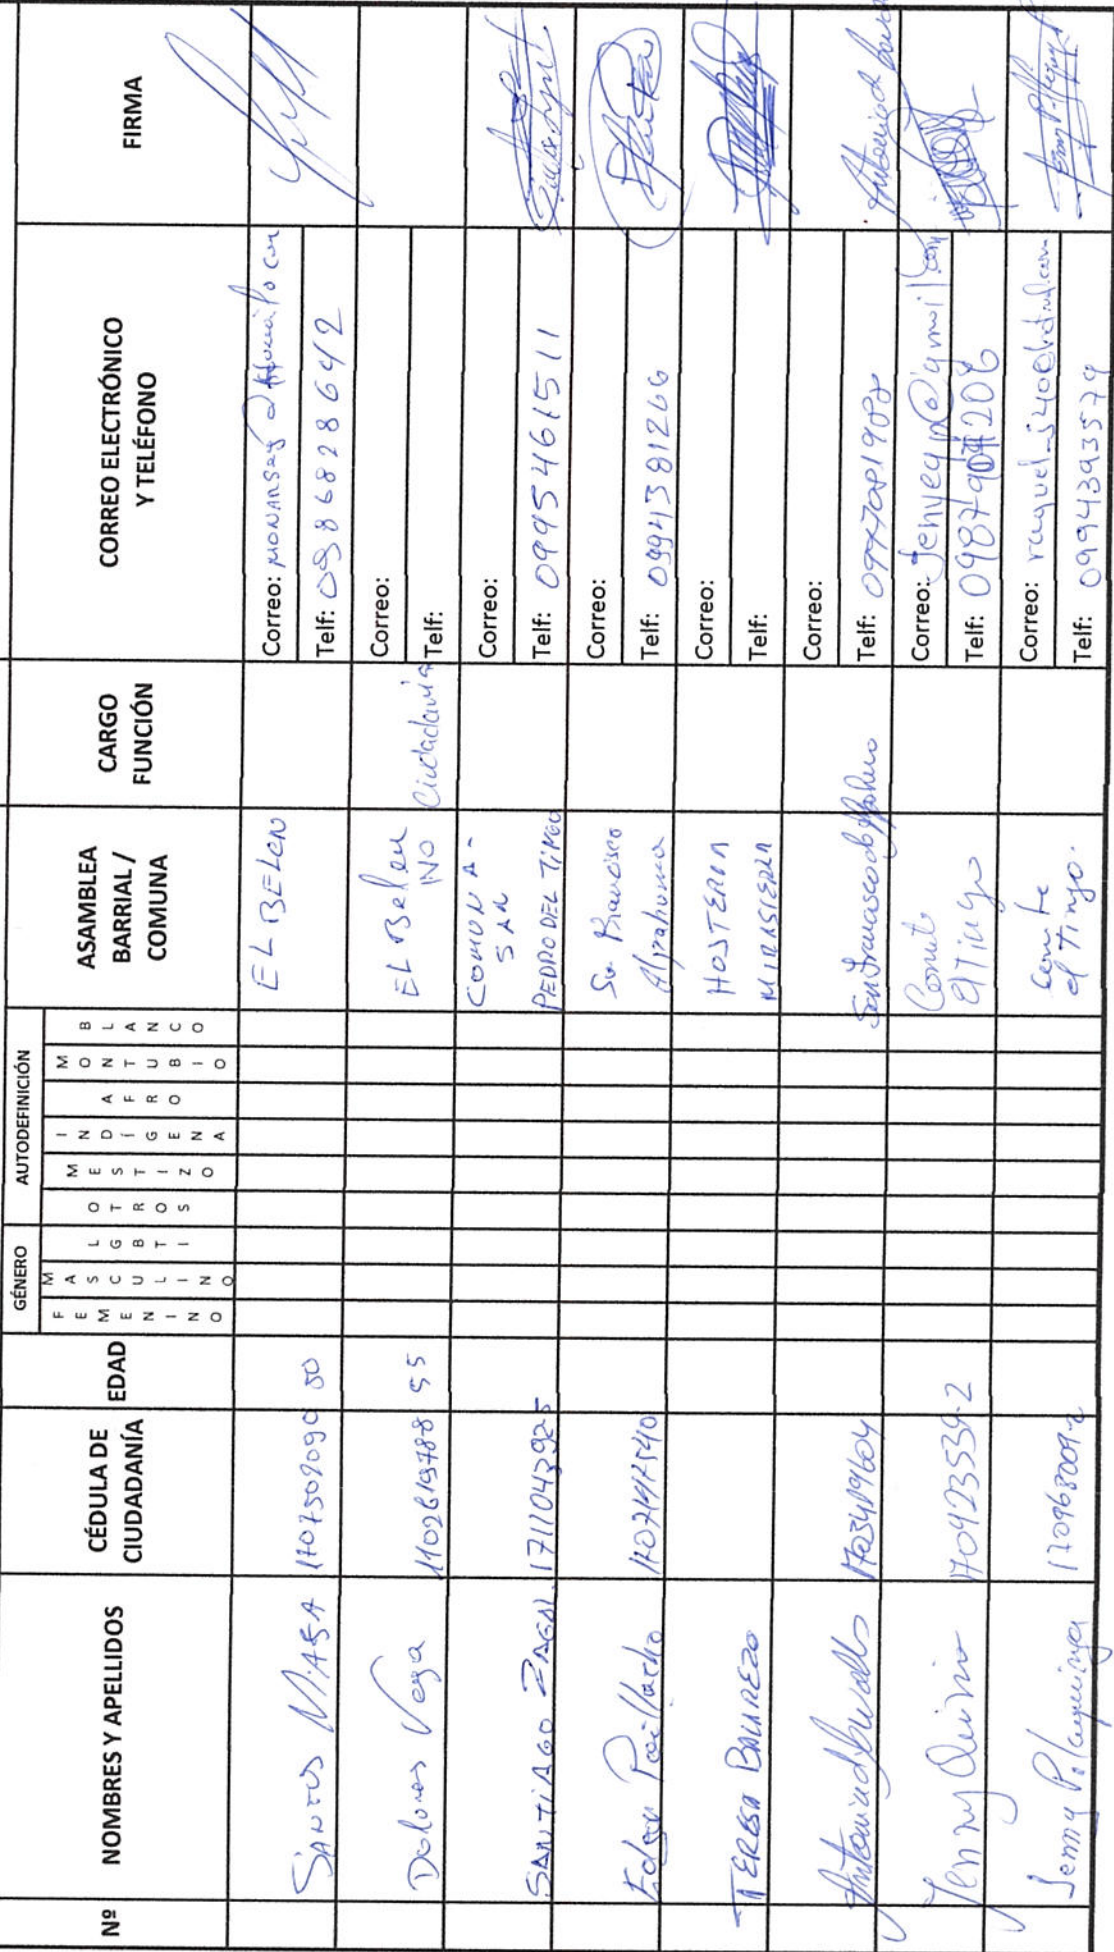 Nº
NOMBRES Y APELLIDOS
CÉDULA DE CIUDADANÍA
EDAD
GÉNERO
FEMENINO
MASCULINO
LGBTI
AUTODEFINICIÓN
OTROS
MESTIZO
INDÍGENA
AFRO
MONTUBIO
BLANCO
ASAMBLEA BARRIAL / COMUNA
CARGO FUNCIÓN
CORREO ELECTRÓNICO Y TELÉFONO
FIRMA
SANTOS MASA 1107509090 50 EL BELEN
Correo:
Telf: 0986828642
Dolores Vega 1102619788 55 EL Belen
INO Ciudadania
Correo:
Telf:
SANTIAGO ZAGAL 1711043925 COMUNA-
SAN
PEDRO DEL TINGO
Correo:
Telf: 0995461511
Edgar Paillacho Sn. Francisco
Alpahuma
Correo:
Telf: 0994381266
TERESA BALAREZO HOSTERIA
MIRASIERRA
Correo:
Telf:
San Francisco de Alpahuma
Correo:
Telf:
Jenny Quino 170423539-2 Comite
El Tingo
Correo:
Telf:
Jenny Pilaquinga 170968009-2 Comite
el Tingo.
Correo:
Telf: 0994393579